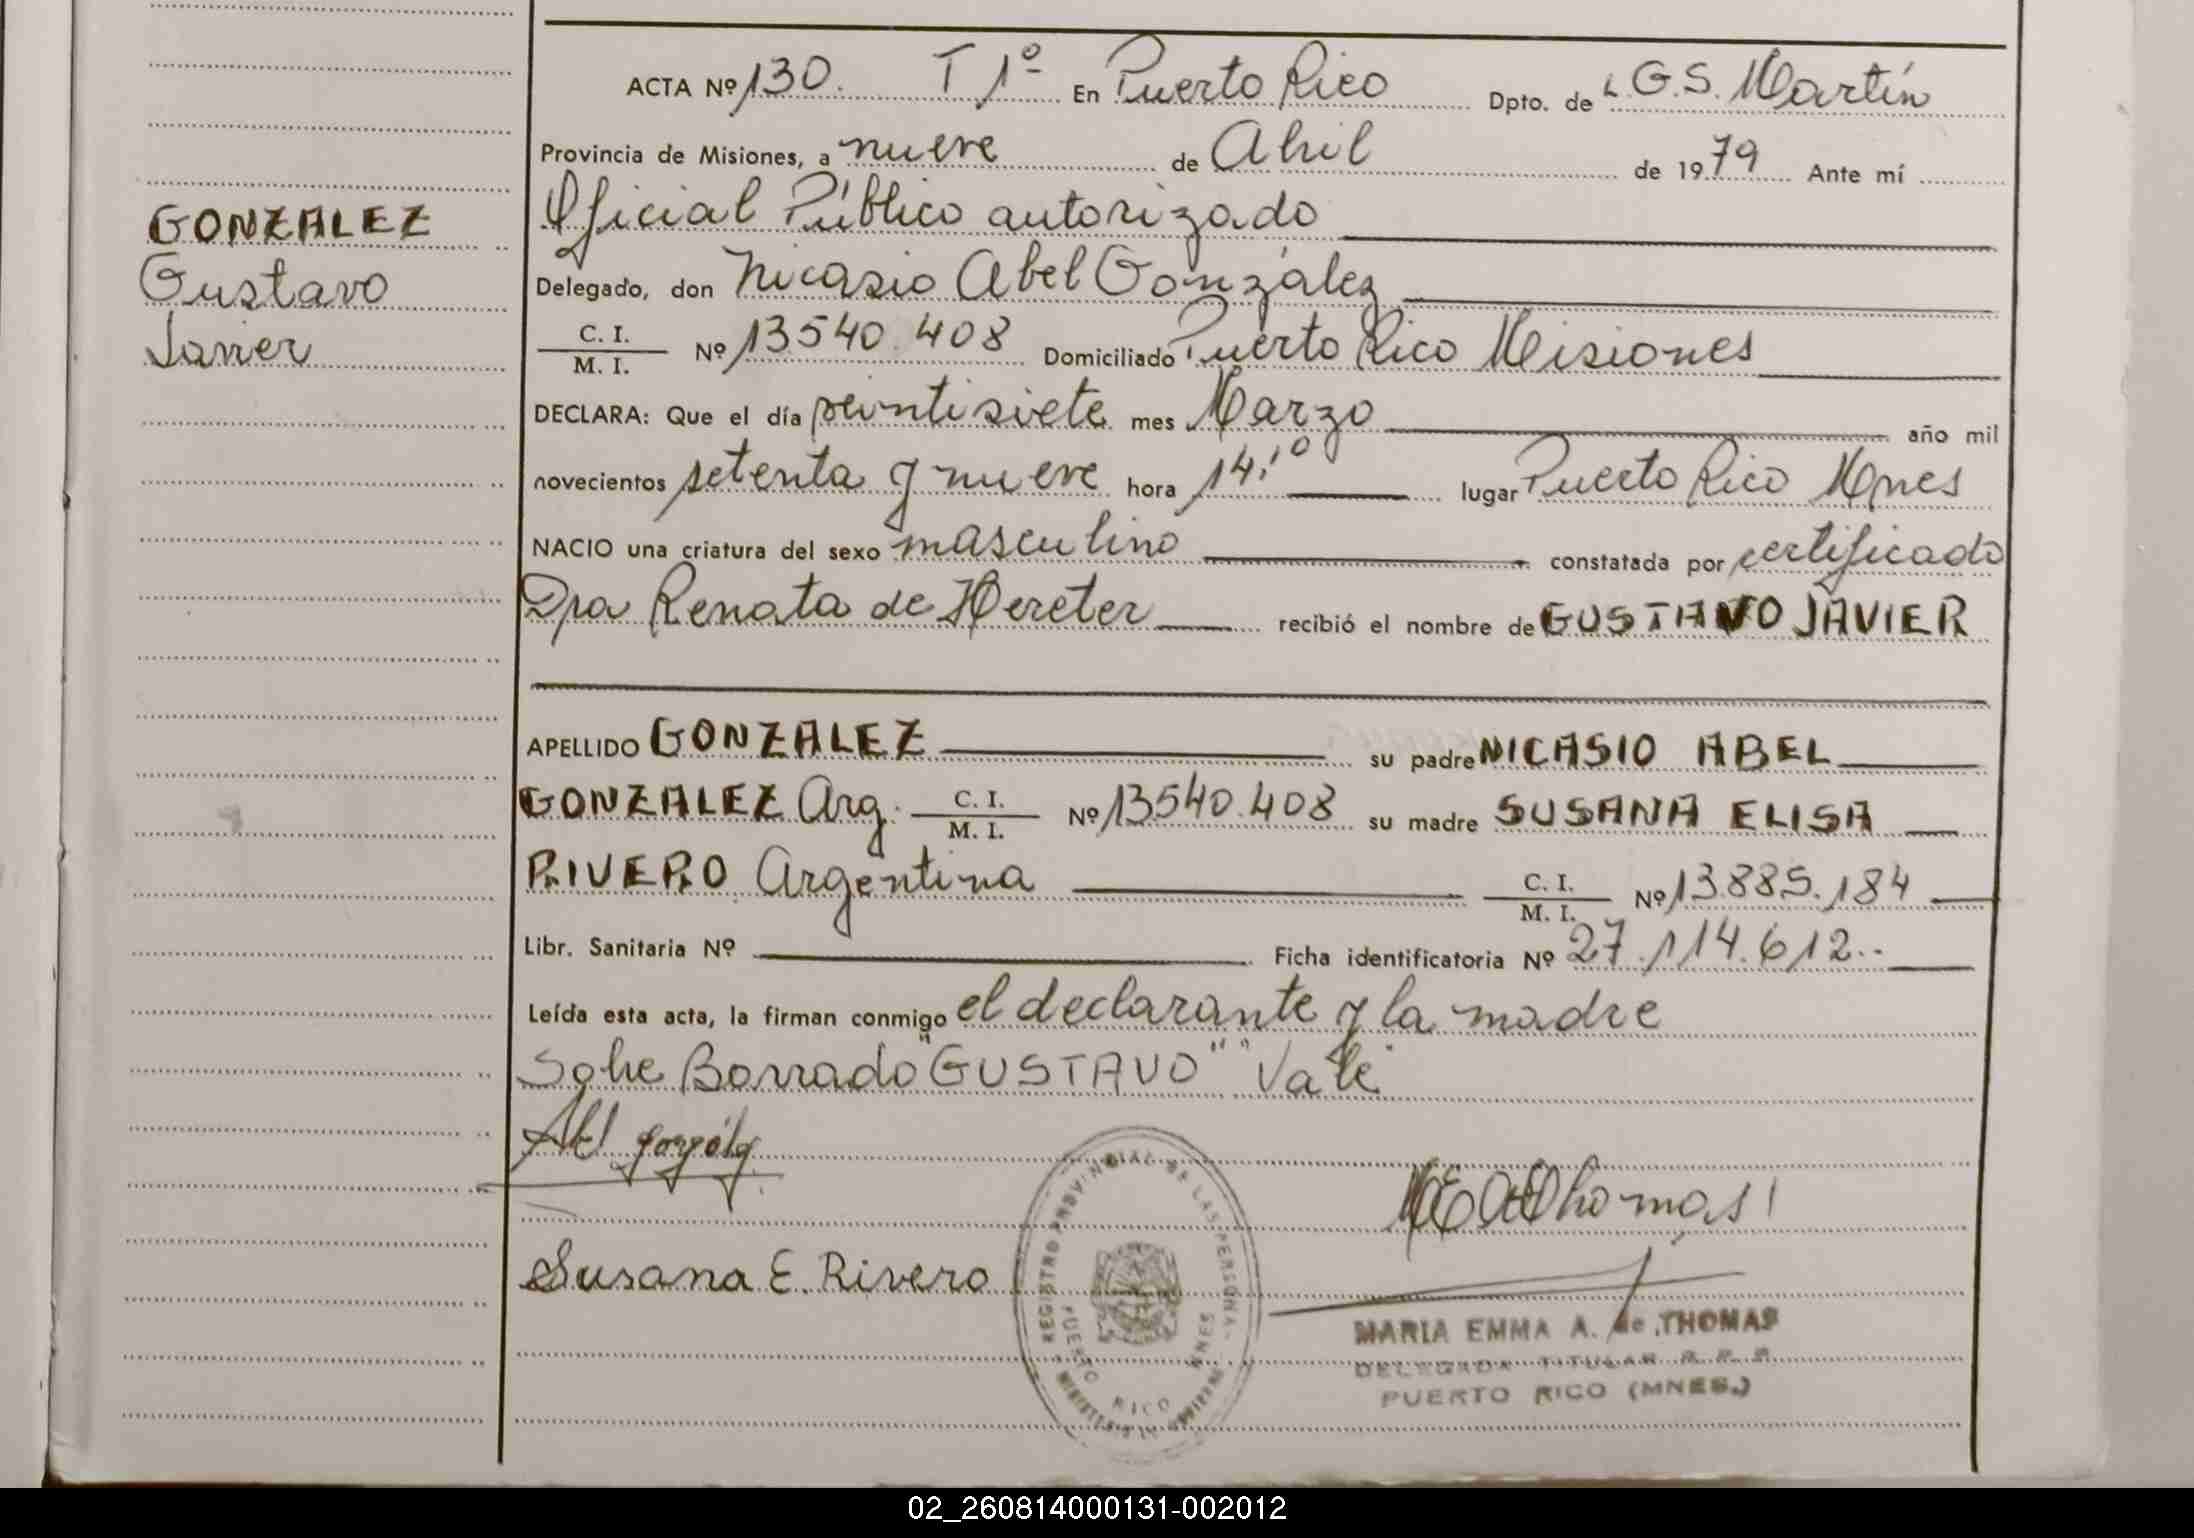 ACTA Nº 130. T 1º En Puerto Rico Dpto. de L.G.S. Martín
Provincia de Misiones, a nueve de Abril de 1979 Ante mí
Oficial Público autorizado
GONZALEZ
Gustavo
Javier
Delegado, don Nicasio Abel González
C. I.
M. I. Nº 13540.408 Domiciliado Puerto Rico Misiones
DECLARA: Que el día veintisiete mes Marzo año mil
novecientos setenta y nueve hora 14,10 lugar Puerto Rico Mnes
NACIO una criatura del sexo masculino constatada por certificado
Dra Renata de Hereter recibió el nombre de GUSTAVO JAVIER
APELLIDO GONZALEZ su padre NICASIO ABEL
GONZALEZ Arg. C. I. M. I. Nº 13540.408 su madre SUSANA ELISA
RIVERO Argentina C. I. M. I. Nº 13.885.184
Libr. Sanitaria Nº Ficha identificatoria Nº 27.114.612..
Leída esta acta, la firman conmigo el declarante y la madre
Sobre Borrado "GUSTAVO" "Vale"
Abel González
Susana E. Rivero
REGISTRO PROVINCIAL DE LAS PERSONAS
PUERTO RICO MNES
MINISTERIO DE GOBIERNO
MEAdeThomas
MARIA EMMA A. de THOMAS
DELEGADA TITULAR R. P. P.
PUERTO RICO (MNES.)
02_260814000131-002012